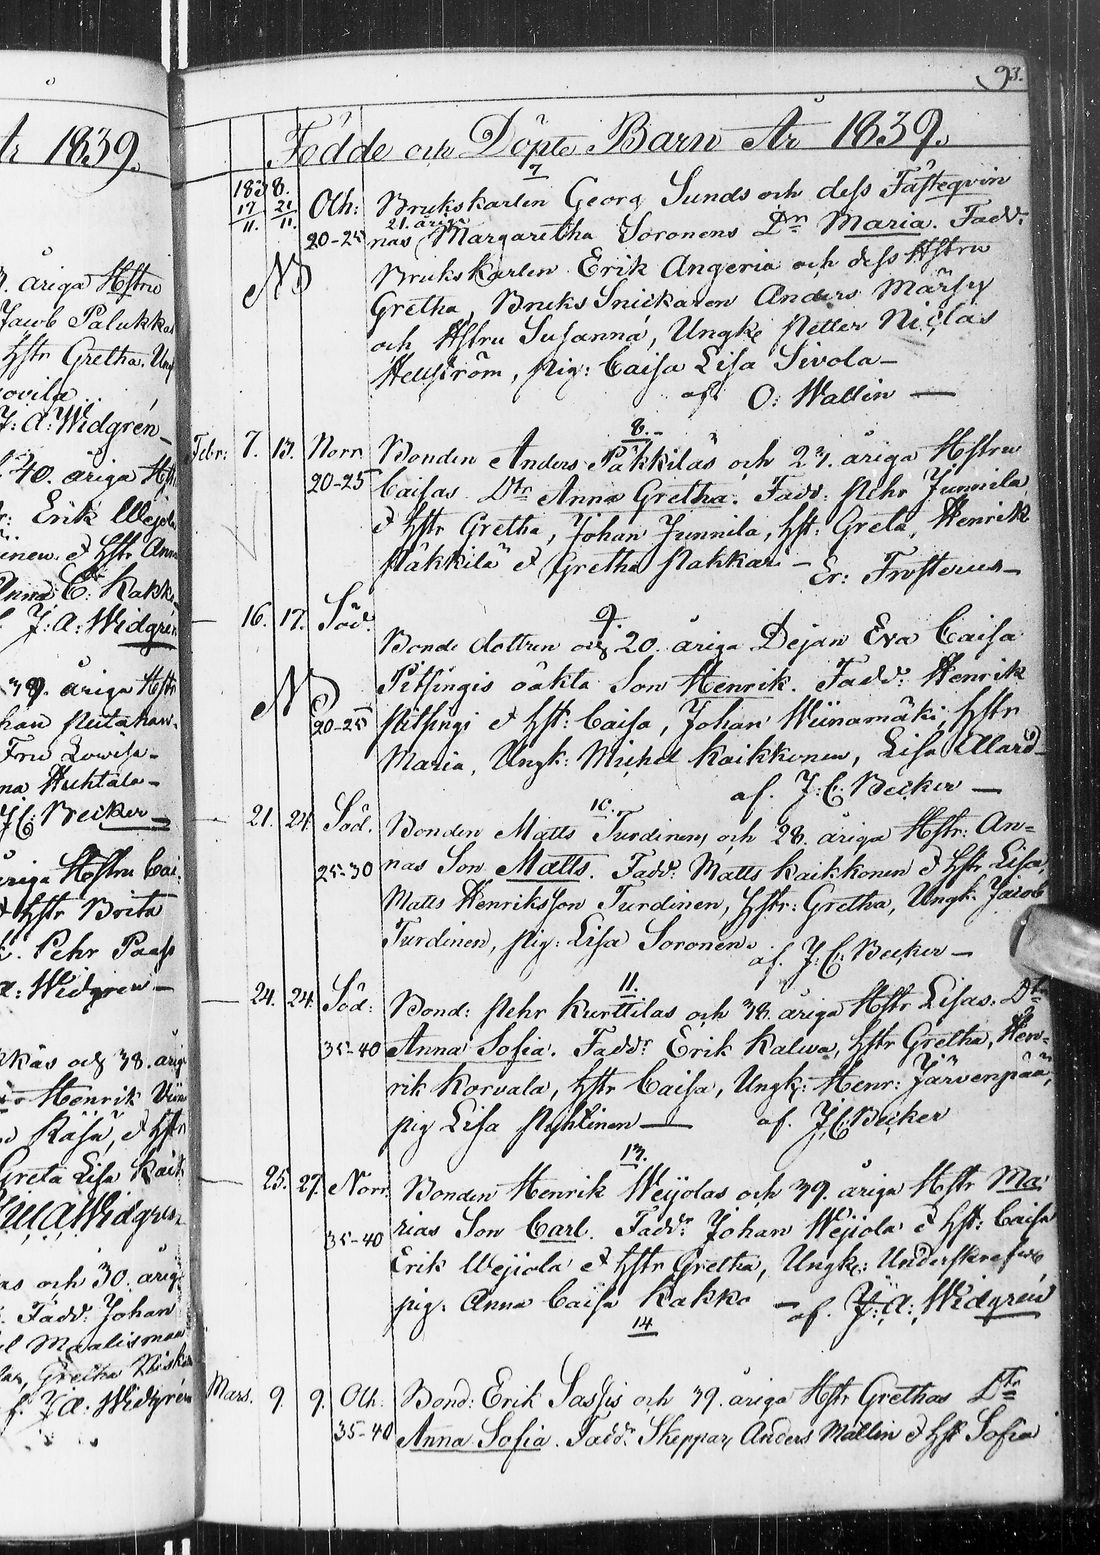 93.
Födde och Döpte Barn År 1839.
7
1838.
17/11. 21/11. Olh: Brukskarlen Georg Sunds och dess Fästeqvin
21. åriga
20-25 nas Margaretha Soronens Dr Maria. Fadd:
NB Brukskarlen Erik Angeria och dess Hstru
Gretha, Bruks Snickaren Anders
och Hstru Susanna, Ungk: Petter Niclas
Hellström, Pig: Caisa Lisa Sivola —
af O: Wallin —
8.
Febr: 7. 13. Norr. Bonden Anders Päkkiläs och 23. åriga Hstru
20-25 Caisas Dtr Anna Gretha. Fadd: Pehr Junnila
& Hstr Gretha, Johan Junnila, Hst: Greta, Henrik
Päkkilä & Gretha Pakkari — Er: Frosterus —
9.
16. 17. Söd. Bonde dottren och 20. åriga Dejan Eva Caisa
NB Pitsingis oäkta Son Henrik. Fadd: Henrik
20-25 Pitsingi & Hst: Caisa, Johan Wiinamäki, Hstr
Maria, Ungk: Michel Kaikkonen, Lisa Alard —
af. J: C: Becker —
10.
21. 24. Söd. Bonden Matts Turdinens och 28. åriga Hstr: An=
25-30 nas Son Matts. Fadd: Matts Kaikkonen & Hstr Lisa,
Matts Henriksson Turdinen, Hstr: Gretha, Ungk: Jacob
Turdinen, Pig: Lisa Soronen. af. J: C: Becker —
11.
24. 24. Söd: Bond: Pehr Kurttilas och 38. åriga Hstr Lisas. Dtr
35-40 Anna Sofia. Fadd: Erik Kalwa, Hstr Gretha, Hen=
rik Korvala, Hstr Caisa, Ungk: Henr: Järvenpää,
Pig Lisa Pehlinen — af. J: C: Becker
13.
25. 27. Norr. Bonden Henrik Weijolas och 39. åriga Hstr Ma=
35-40 rias Son Carl. Fadd: Johan Wejiola & Hst: Caisa
Erik Wejiola & Hstr Gretha, Ungk: Underskrefwe
pig: Anna Caisa Kakko — af. J: A: Widgrén
14
Mars. 9. 9. Olh. Bond: Erik Sassis och 39. åriga Hstr Grethas Dtr
35-40 Anna Sofia. Fadd: Skeppar Anders Mallin & Hst Sofia
År 1839.
åriga Hstru
Jacob Palukka
Hstr Gretha. Ung
J: A: Widgrén —
40. åriga Hst
Erik Wejola
& Hstr Anna
Anna C: Kakko
J: A: Widgrén
39. åriga Hstr
Johan
Fru Lowisa —
Huhtala —
J C: Becker —
åriga Hstru Cai
& Hstr Brita
Pehr Paass
A: Widgrén —
och 38. årig
Henrik
Räsä, & Hstr
Greta Lisa Kaik
A Widgrén
och 30. årig
Fadd: Johan
Gretha Nisk
f. J A: Widgrén